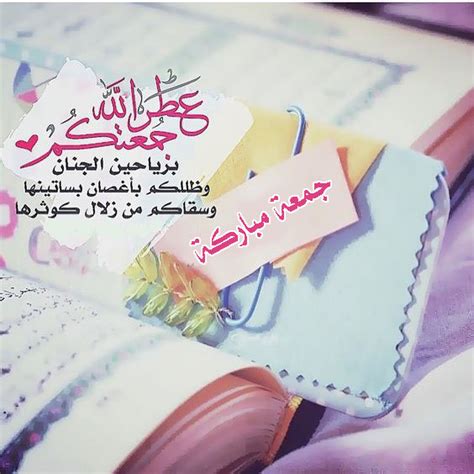 عطر الله
جمعتكم
برياحين الجنان
وظللكم بأغصان بساتينها
وسقاكم من زلال كوثرها
جمعة مباركة